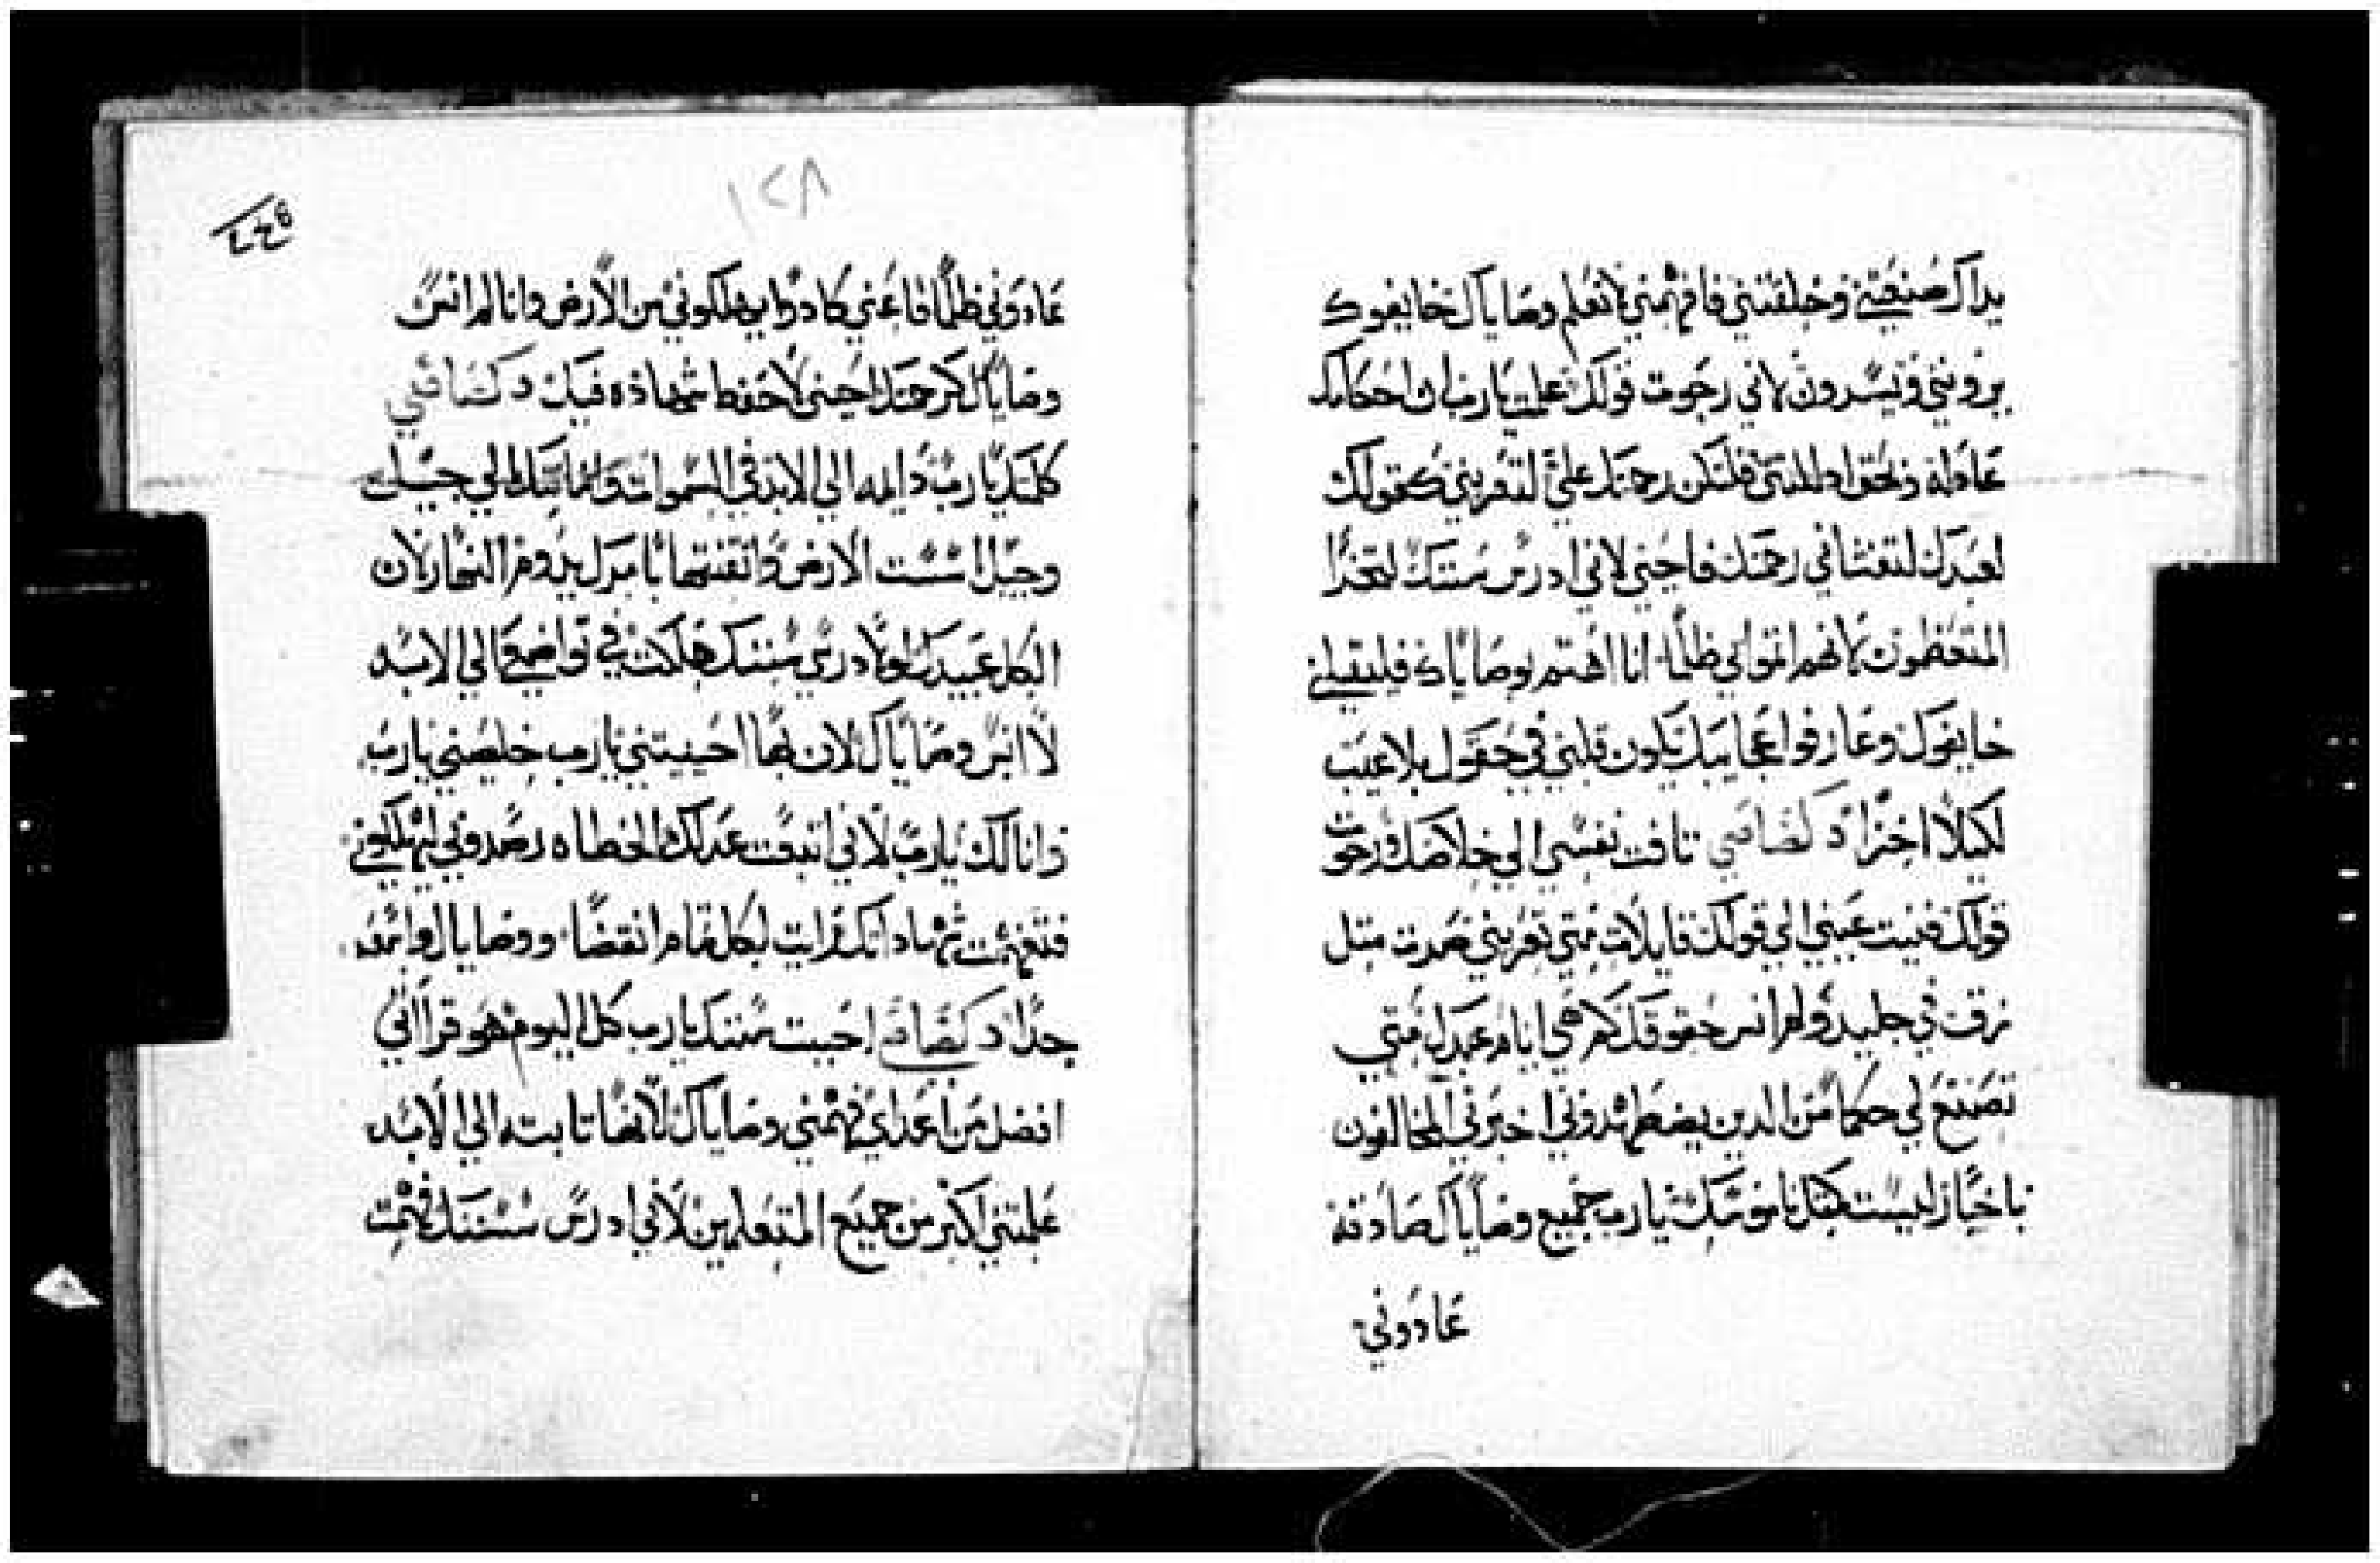 يداك صنعتني وخلقتني فافهمني لاتعلم وصاياك خايفوك
يروني ويسرون لاني رجوت قولك علمت يارب ان احكامك
عادلة وبحق اذللتني فلتكن رحمتك علي لتعزيني كقولك
لعبدك لتغشاني رحمتك فاحيني لاني ادرس سننك ليخزا
المتعظمون لانهم اتوا لي ظلما انا اهتم بوصاياك فليقبلني
خايفوك وعارفوا عجايبك يكون قلبي في حقوقك بلا عيب
لكيلا اخزا تاقت نفسي الي خلاصك ورجوت
قولك فنيت عيني الي قولك قايلات متي تعزيني صرت متل
زق في جليد ولم انس حقوقك كم هي ايام عبدك متي
تصنع لي حكما من الدين يضطهدوني اخبرني المخالفون
باخبار ليست كمثل ناموسك يارب جميع وصاياك صادقة
عادوني
١٢٨
عادوني ظلما فاعني كادوا يهلكوني من الارض وانا لم انس
وصاياك كرحمتك احيني لاحفظ شهادة فيك
كلمتك يارب دايمه الي الابد في السموات وامانتك الي جيل
وجيل اسست الارض واتقنتها بامرك يدوم النهار لان
الكل عبيدك لولا درس سننك هلكت في تواضعي الي الابد
لا انس وصاياك لان بها احييتني يارب خلصني يارب
وانا لك يارب لاني اتبعت عدلك الخطاه رصدوني ليهلكوني
فتفهمت شهاداتك رايت لكل تمام انقضا ووصاياك واسعه
جدا احببت سننك يارب كل اليوم هو قراتي
افضل من اعداي فهمني وصاياك لانها تابته الي الابد
علمتني اكتر من جميع المتعلمين لاني ادرس سننك فهمت